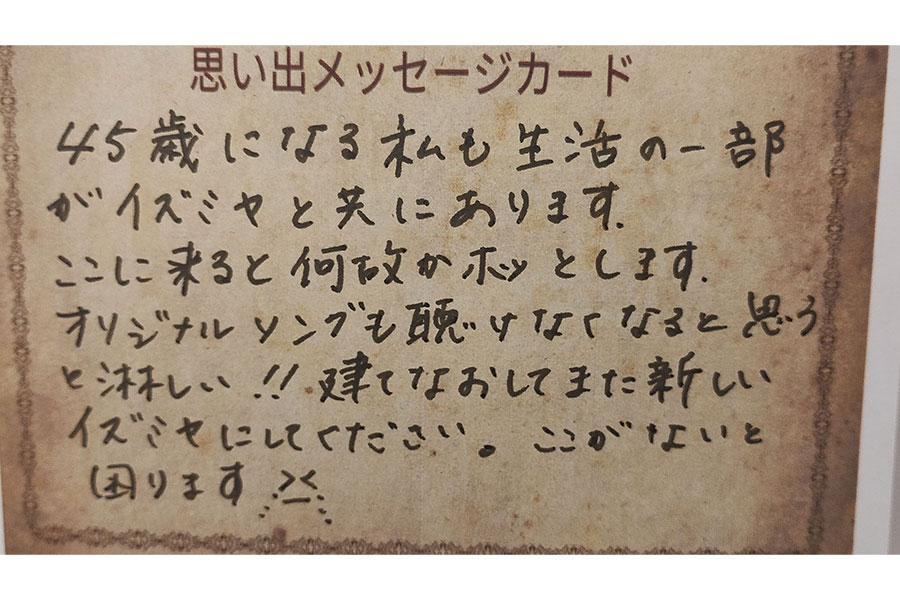 思い出メッセージカード
45歳になる私も生活の一部
がイズミヤと共にあります.
ここに来ると何故かホッとします.
オリジナルソングも聴けなくなると思う
と淋しい!!建てなおしてまた新しい
イズミヤにしてください。ここがないと
困ります